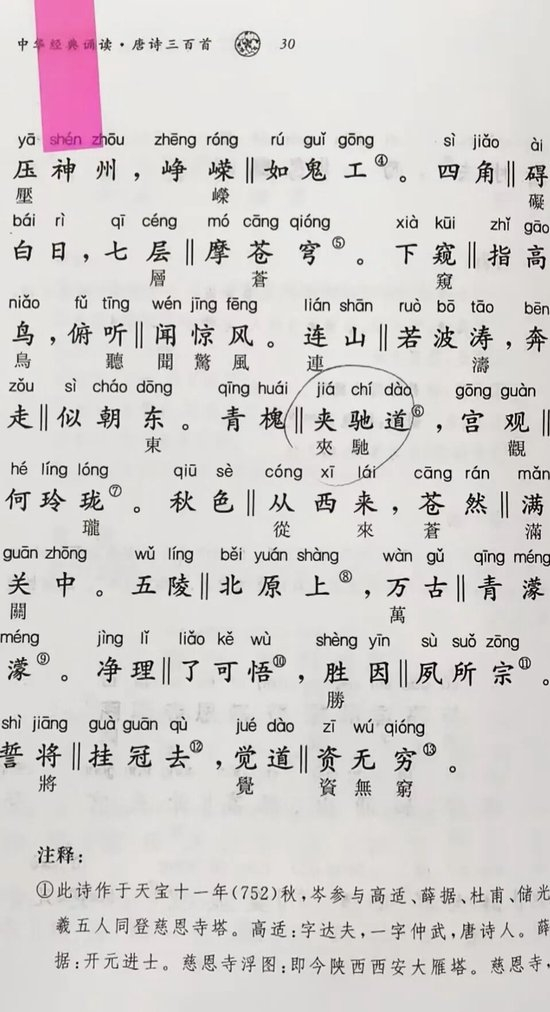 中华经典诵读·唐诗三百首 30
yā shén zhōu zhēng róng rú guǐ gōng sì jiǎo ài
压神州，峥嵘‖如鬼工④。四角‖碍
壓 嶸 礙
bái rì qī céng mó cāng qióng xià kuī zhǐ gāo
白日，七层‖摩苍穹⑤。下窥‖指高
層 蒼 窺
niǎo fǔ tīng wén jīng fēng lián shān ruò bō tāo bēn
鸟，俯听‖闻惊风。连山‖若波涛，奔
鳥 聽 聞 驚 風 連 濤
zǒu sì cháo dōng qīng huái jiá chí dào gōng guàn
走‖似朝东。青槐‖夹驰道⑥，宫观‖
東 夾 馳 觀
hé líng lóng qiū sè cóng xī lái cāng rán mǎn
何玲珑⑦。秋色‖从西来，苍然‖满
瓏 從 來 蒼 滿
guān zhōng wǔ líng běi yuán shàng wàn gǔ qīng méng
关中。五陵‖北原上⑧，万古‖青濛
關 萬
méng jìng lǐ liǎo kě wù shèng yīn sù suǒ zōng
濛⑨。净理‖了可悟⑩，胜因‖夙所宗⑪。
勝
shì jiāng guà guān qù jué dào zī wú qióng
誓将‖挂冠去⑫，觉道‖资无穷⑬。
將 覺 資 無 窮
注释：
①此诗作于天宝十一年(752)秋，岑参与高适、薛据、杜甫、储光
羲五人同登慈恩寺塔。高适：字达夫，一字仲武，唐诗人。薛
据：开元进士。慈恩寺浮图：即今陕西西安大雁塔。慈恩寺，